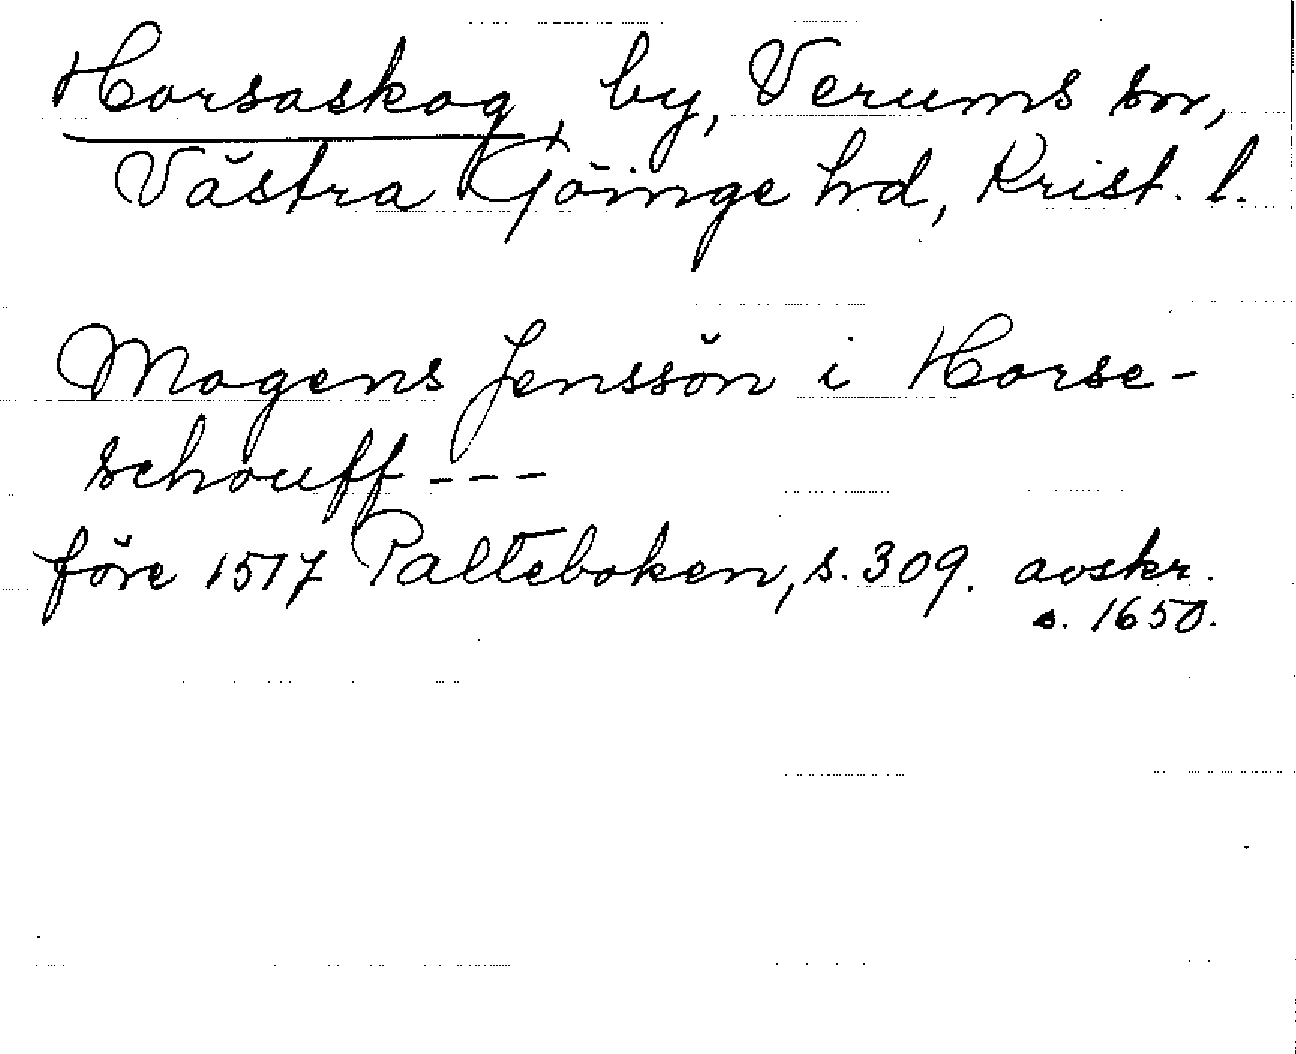 Horsaskog, by, Verums sn,
Västra Göinge hd, Krist. l.
Mogens Jenssön i Horse-
schouff ---
före 1517 Palteboken, s. 309. avskr.
o. 1650.